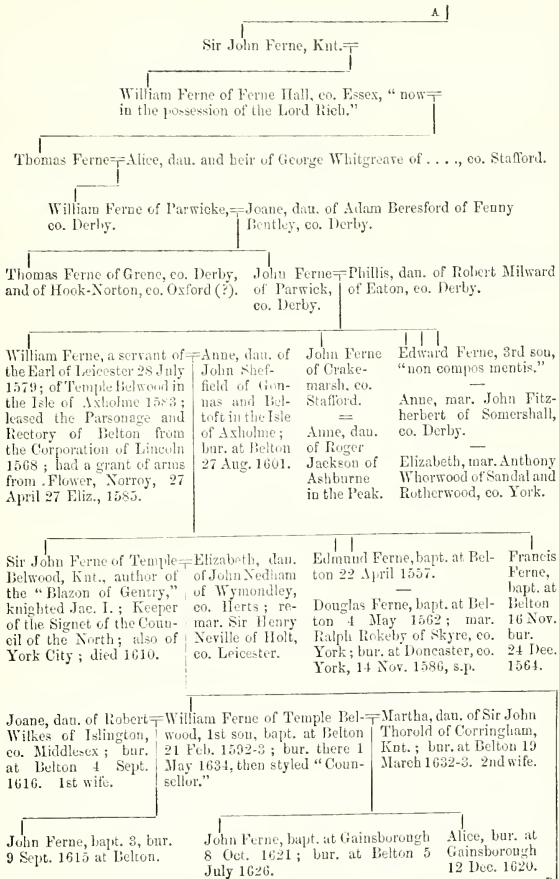 A
Sir John Ferne, Knt.
William Ferne of Ferne Hall, co. Essex, “ now
in the possession of the Lord Rich.”
Thomas Ferne Alice, dau. and heir of George Whitgreave of . . . ., co. Stafford.
William Ferne of Parwicke,
co. Derby.
Joane, dau. of Adam Beresford of Fenny
Bentley, co. Derby.
Thomas Ferne of Grene, co. Derby,
and of Hook-Norton, co. Oxford (?).
John Ferne
of Parwick,
co. Derby.
Phillis, dan. of Robert Milward
of Eaton, co. Derby.
William Ferne, a servant of
the Earl of Leicester 28 July
1579; of Temple Belwood in
the Isle of Axholme 1583;
leased the Parsonage and
Rectory of Belton from
the Corporation of Lincoln
1568 ; had a grant of arms
from . Flower, Norroy, 27
April 27 Eliz., 1585.
Anne, dau. of
John Shef-
field of Gon-
nas and Bel-
toft in the Isle
of Axholme ;
bur. at Belton
27 Aug. 1601.
John Ferne
of Crake-
marsh, co.
Stafford.
=
Anne, dau.
of Roger
Jackson of
Ashburne
in the Peak.
Edward Ferne, 3rd son,
“non compos mentis.”
—
Anne, mar. John Fitz-
herbert of Somershall,
co. Derby.
—
Elizabeth, mar. Anthony
Whorwood of Sandal and
Rotherwood, co. York.
Sir John Ferne of Temple
Belwood, Knt., author of
the “Blazon of Gentry,”
knighted Jac. I. ; Keeper
of the Signet of the Coun-
cil of the North ; also of
York City ; died 1610.
Elizabeth, dau.
of John Nedham
of Wymondley,
co. Herts ; re-
mar. Sir Henry
Neville of Holt,
co. Leicester.
Edmund Ferne, bapt. at Bel-
ton 22 April 1557.
—
Douglas Ferne, bapt. at Bel-
ton 4 May 1562 ; mar.
Ralph Rokeby of Skyre, co.
York ; bur. at Doncaster, co.
York, 14 Nov. 1586, s.p.
Francis
Ferne,
bapt. at
Belton
16 Nov.
bur.
24 Dec.
1564.
Joane, dau. of Robert
Wilkes of Islington,
co. Middlesex ; bur.
at Belton 4 Sept.
1616. 1st wife.
William Ferne of Temple Bel-
wood, 1st son, bapt. at Belton
21 Feb. 1592-3 ; bur. there 1
May 1634, then styled “Coun-
sellor.”
Martha, dau. of Sir John
Thorold of Corringham,
Knt. ; bur. at Belton 19
March 1632-3. 2nd wife.
John Ferne, bapt. 3, bur.
9 Sept. 1615 at Belton.
John Ferne, bapt. at Gainsborough
8 Oct. 1621 ; bur. at Belton 5
July 1626.
Alice, bur. at
Gainsborough
12 Dec. 1620.